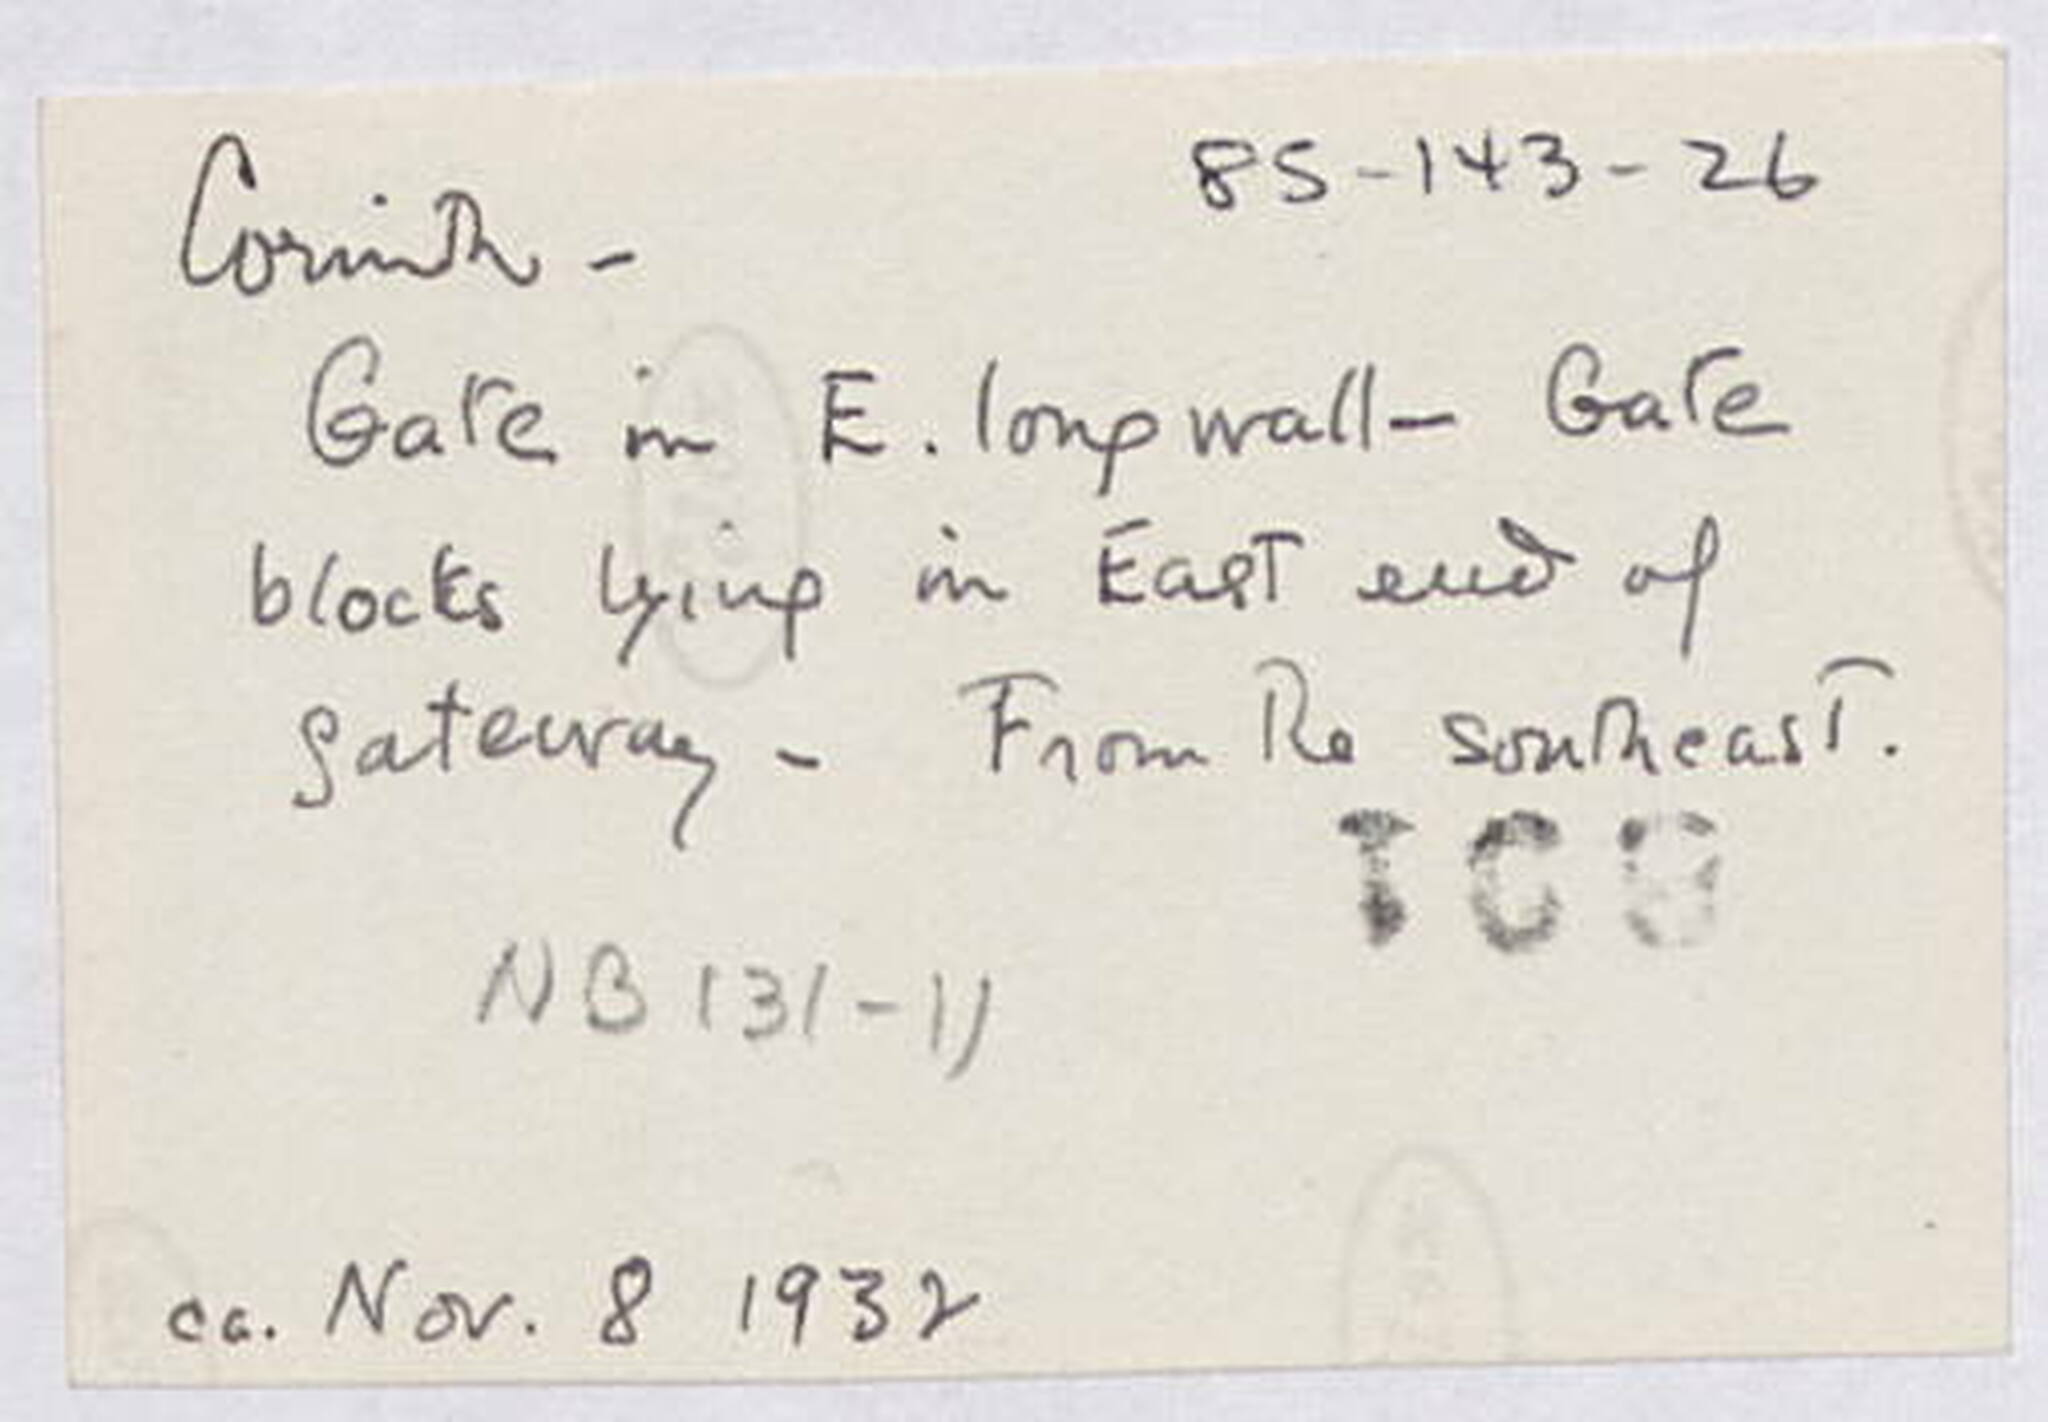 85-143-26
Corinth -
Gate in E. long wall - Gate
blocks lying in East end of
gateway - From the southeast.
NB 131-11
ca. Nov. 8 1932